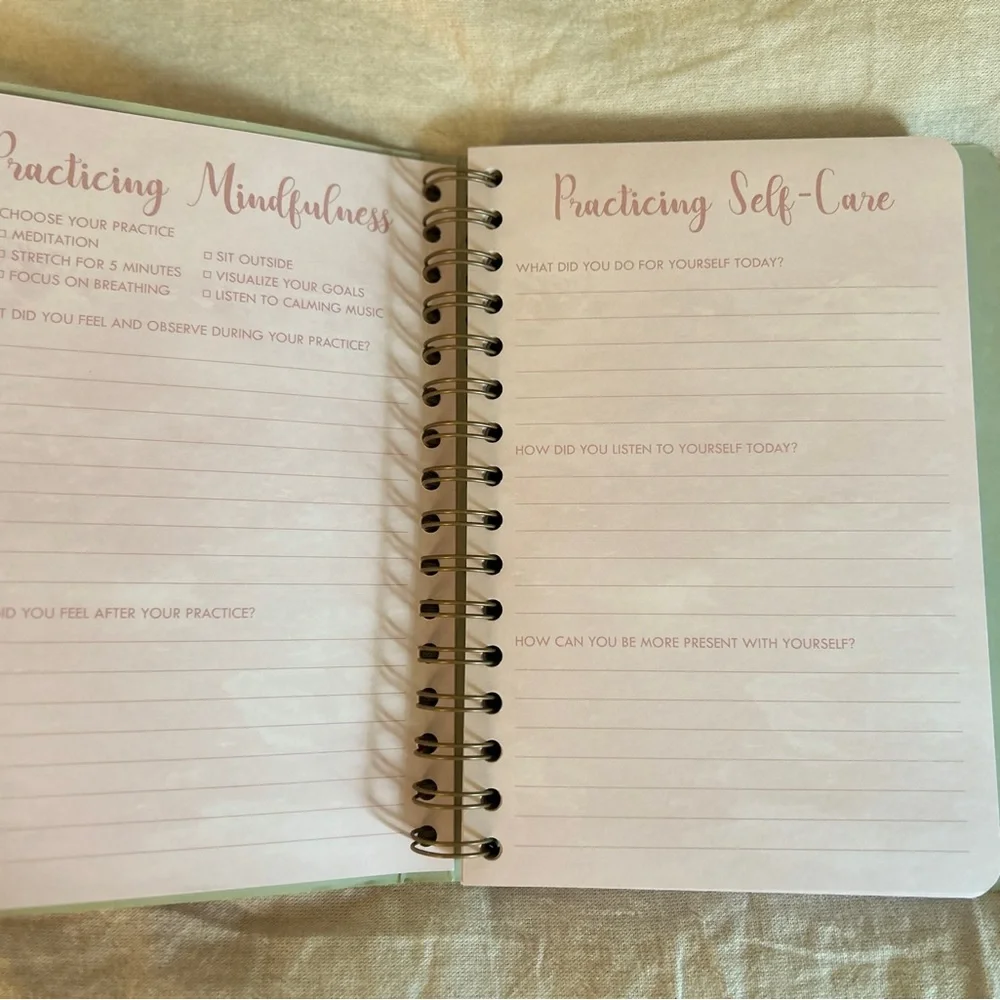 Practicing Mindfulness
CHOOSE YOUR PRACTICE
MEDITATION
STRETCH FOR 5 MINUTES
FOCUS ON BREATHING
SIT OUTSIDE
VISUALIZE YOUR GOALS
LISTEN TO CALMING MUSIC
DID YOU FEEL AND OBSERVE DURING YOUR PRACTICE?
YOU FEEL AFTER YOUR PRACTICE?
Practicing Self-Care
WHAT DID YOU DO FOR YOURSELF TODAY?
HOW DID YOU LISTEN TO YOURSELF TODAY?
HOW CAN YOU BE MORE PRESENT WITH YOURSELF?